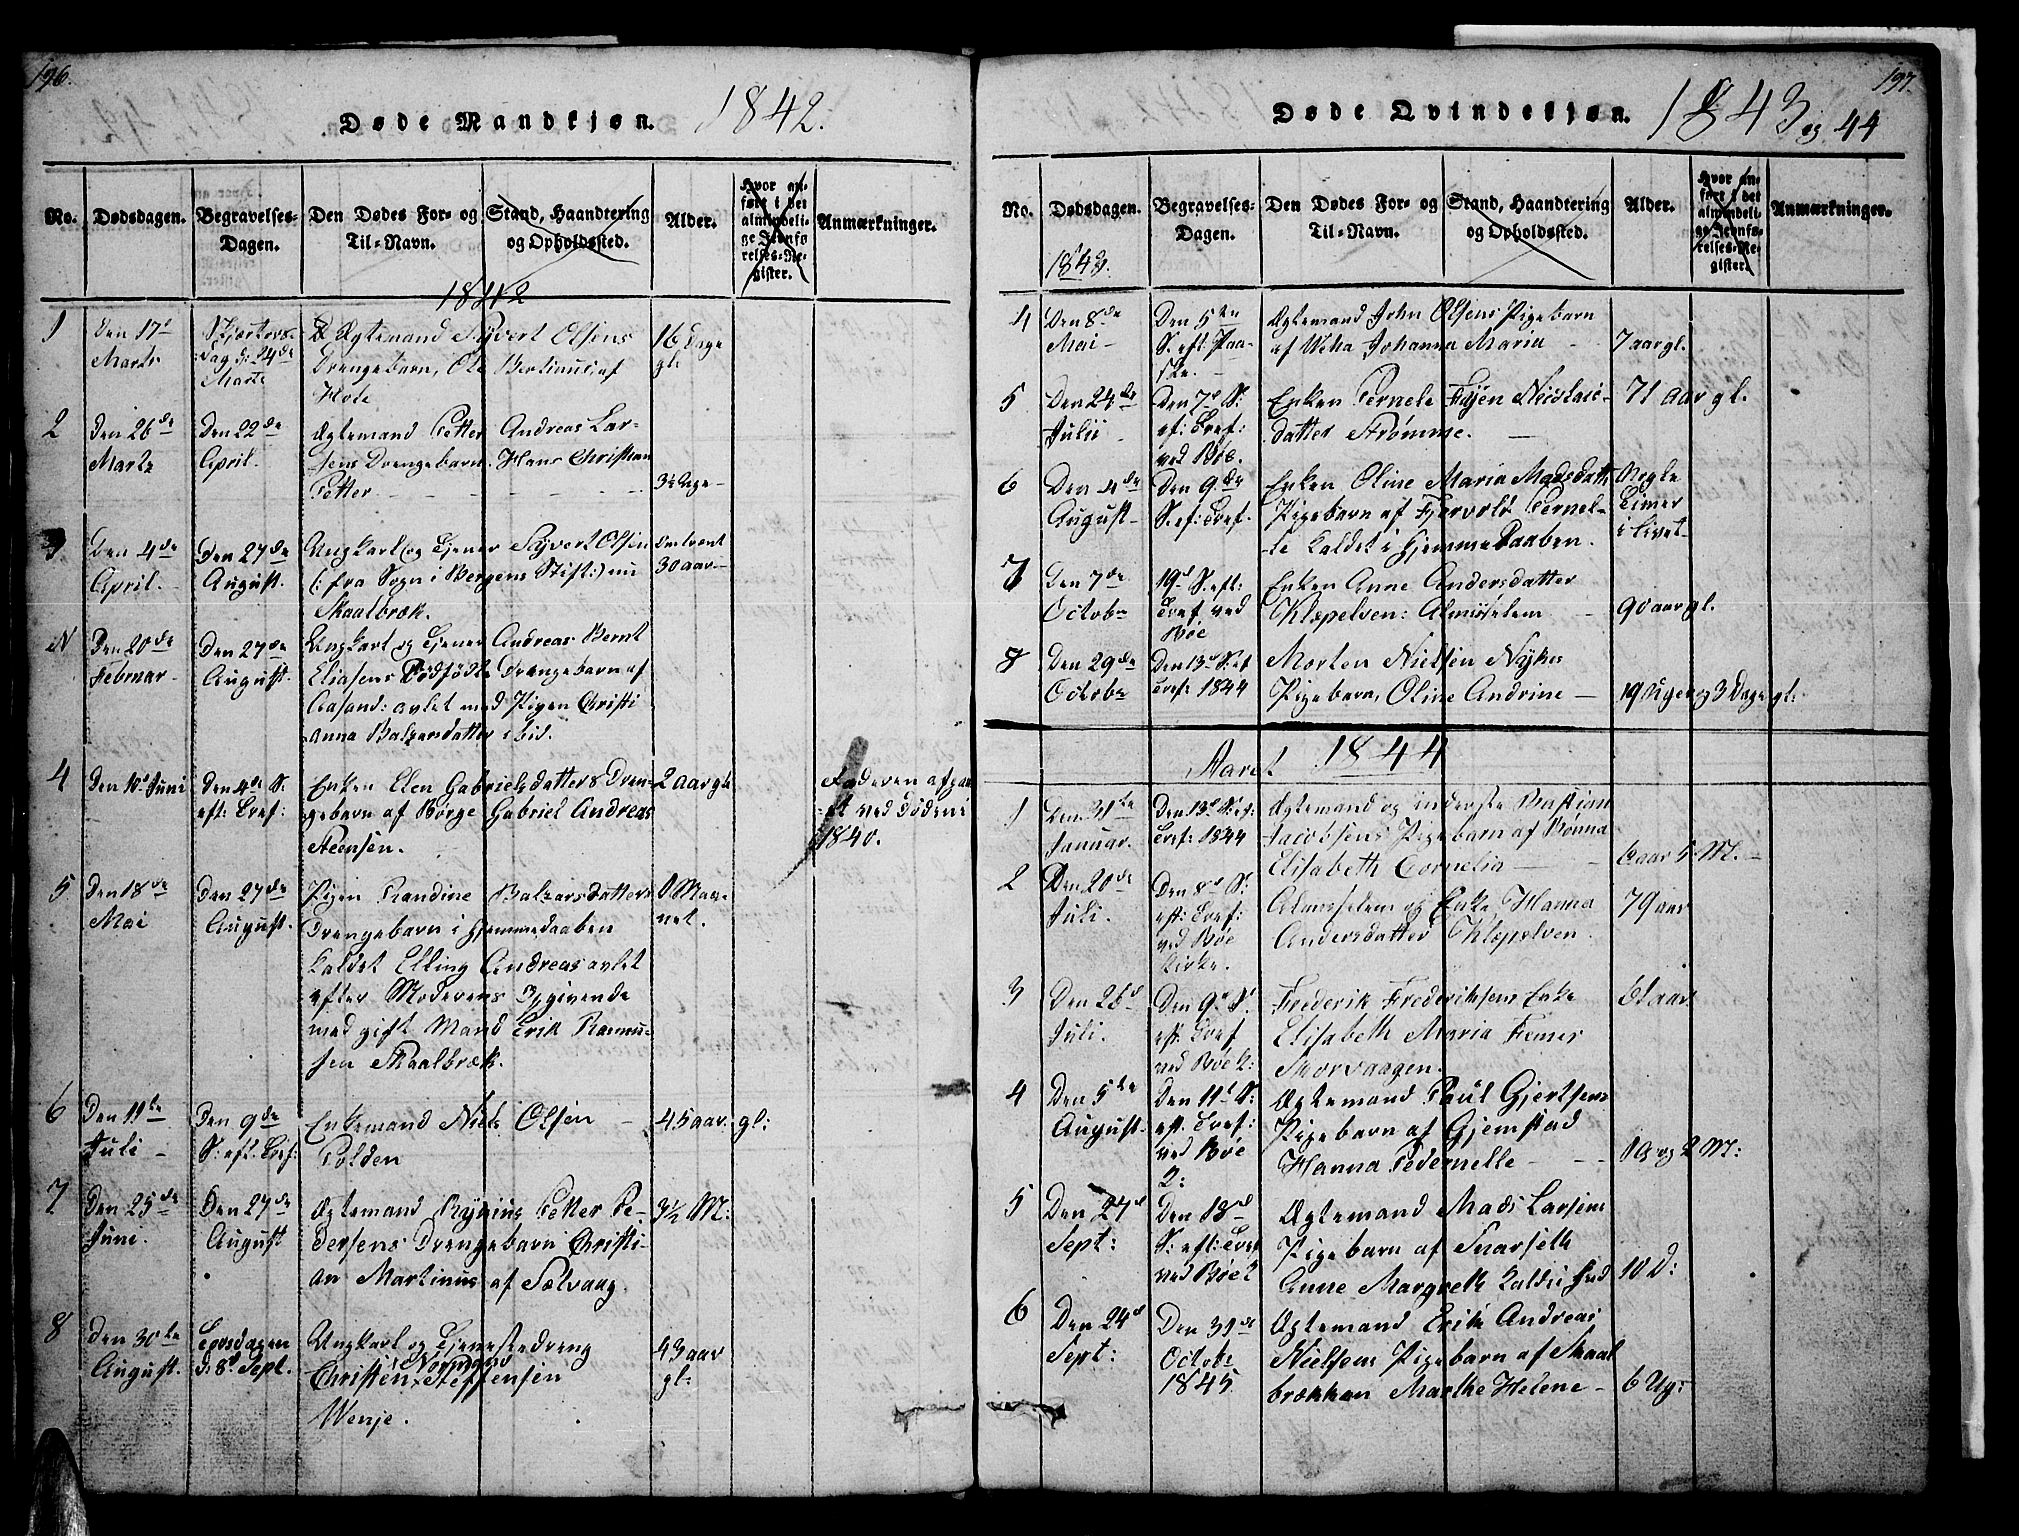 196.
Døde Mandkjøn. 1842.
No.
Dødsdagen.
Begravelses-
Dagen.
Den Dødes For- og
Til-Navn.
Stand, Haandtering
og Opholdssted.
Alder.
Hvor an-
ført i det
almindeli-
ge Jevnfø
relses-Re-
gister.
Anmærkninger.
1842
1
Den 17d
Marts
Skjærtors-
dag d: 24de
Marts
Ægtemand Syvert Olsens
Drengebarn, Ole Bertinus af
Hole
16 Dage
gl:
2
Den 26de
Marts
Den 22de
April.
Ægtemand Petter Andreas Lar-
sens Drengebarn Hans Christian
Petter
3½ Uge
3
Den 4de
April.
Den 27de
August.
Ungkarl og Tjener Syvert Olsen
(: fra Sogn i Bergens Stift:) nu
Skaalbræk.
omtrent
30 aar
N
Den 20de
Februar
Den 27de
August.
Ungkarl og Tjener Andreas Bernt
Eliasens Dødfödte Drengebarn af
Aasand: avlet med Pigen Christi
anna Balzersdatter ibid.
4
Den 10d Juni
Den 4de S.
eft: Tref:
Enken Elen Gabrielsdatters Dren-
gebarn af Börge Gabriel Andreas
Steensen.
2 aar gl.
Faderen afgaa
et ved Döden i
1840.
5
Den 18de
Mai
Den 27de
August.
Pigen Randine Balzersdatters
Drengebarn i Hjemmedaaben
kaldet Elling Andreas avlet
efter Moderens Opgivende
med gift Mand Erik Rasmu-
sen Skaalbræk.
6
Den 11te
Juli
Den 9de
S: eft. Tref:
Enkemand Niels Olsen
Polden
45 aar gl:
7
Den 25de
June.
Den 27de
August
Ægtemand Rynius Petter Pe-
dersens Drengebarn Christi-
an Martinus af Sælvaag.
3½ M:
8
Den 30te
August.
Torsdagen
d: 8d Sept.
Ungkarl og Tjenestedreng
Normand
Christen Steffensen
Wenje.
43 aar
gl:
197.
Døde Qvindekjøn. 1843 og 44
No.
Dødsdagen.
1843.
Begravelses-
Dagen.
Den Dødes For- og
Til-Navn.
Stand, Haandtering
og Opholdssted.
Alder.
Hvor an-
ført i det
almindeli-
ge Jevnfø-
relses-Re-
gister.
Anmærkninger.
4
Den 8de
Mai
Den 5te
S. eft Paa-
ske.
Ægtemand John Olsens Pigebarn
af Weha Johanna Maria
7 aar gl.
5
Den 24de
Julii
Den 7d S:
ef: Tref:
ved Böe.
Enken Pernele Fryen Nicolai-
datter Strømme.
71 aar gl.
6
Den 4de
August
Den 9de
S. ef: Tref.
Enken Oline Maria Madsdatt.
Pigebarn af Fjervold Pernel-
le kaldet i Hjemmedaaben.
Nogle
Timer
i Livet
7
Den 7de
Octobr
19d S. eft:
Tref. ved
Böe
Enken Anne Andersdatter
Klæpelven: Almisselem
90 aar gl.
8
Den 29de
Octobr
Den 13d S: ef
Tref: 1844
Morten Nielsen Nykes
Pigebarn, Oline Andrine
19 Uger og 3 Dage gl:
Aaret 1844
1
Den 31te
Januar.
Den 13d S: ef:
Tref: 1844
Ægtemand og Inderste Bastian
Jacobsens Pigebarn af Bönna
Elisabeth Cornelia
6 aar 5 M.
2
Den 20de
Juli.
Den 8d S:
eft: Tref:
ved Böe
Kirke.
Almisselem og Enke Hanna
Andersdatter Klæpelven.
79 aar
3
Den 26d
Juli.
Den 9d S:
eft. Tref
ved Böe K:
Frederik Frederiksens Enke
Elisabeth Maria Femer
Skorvaagen.
61 aar
4
Den 5te
August.
Den 11d S:
eft. Tref:
ved Böe
2:
Ægtemand Paul Gjertsens
Pigebarn af Gjemstad
Hanna Pedernelle
1 a og 2 M:
5
Den 27d
Sept:
Den 18d
S: eft: Tref
ved Böe K
Ægtemand Mads Larsens
Pigebarn af Snarseth
Anne Margreth
10 D:
6
Den 24d
Sept:
Den 31de
Octobr
1845
Ægtemand Erik Andreas
Nielsens Pigebarn af Skaal
brækken Marthe Helene
6 Ug: